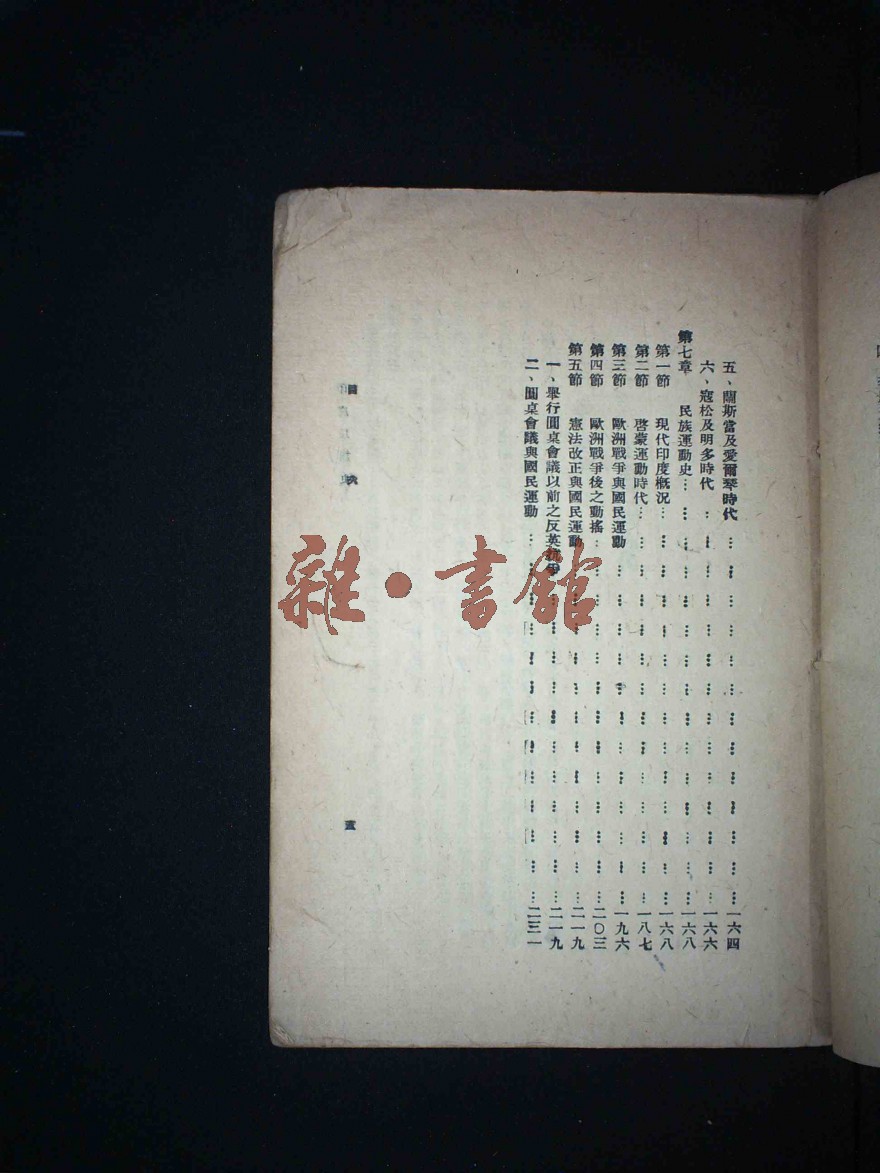 五、蘭斯當及愛爾琴時代……一六四
六、寇松及明多時代……一六六
第七章 民族運動史……一六八
第一節 現代印度概况……一六八
第二節 啓蒙運動時代……一八七
第三節 歐洲戰爭與國民運動……一九六
第四節 歐洲戰爭後之動搖……二〇三
第五節 憲法改正與國民運動……二一九
一、舉行圓桌會議以前之反英抗爭……二一九
二、圓桌會議與國民運動……二三一
雜·書館